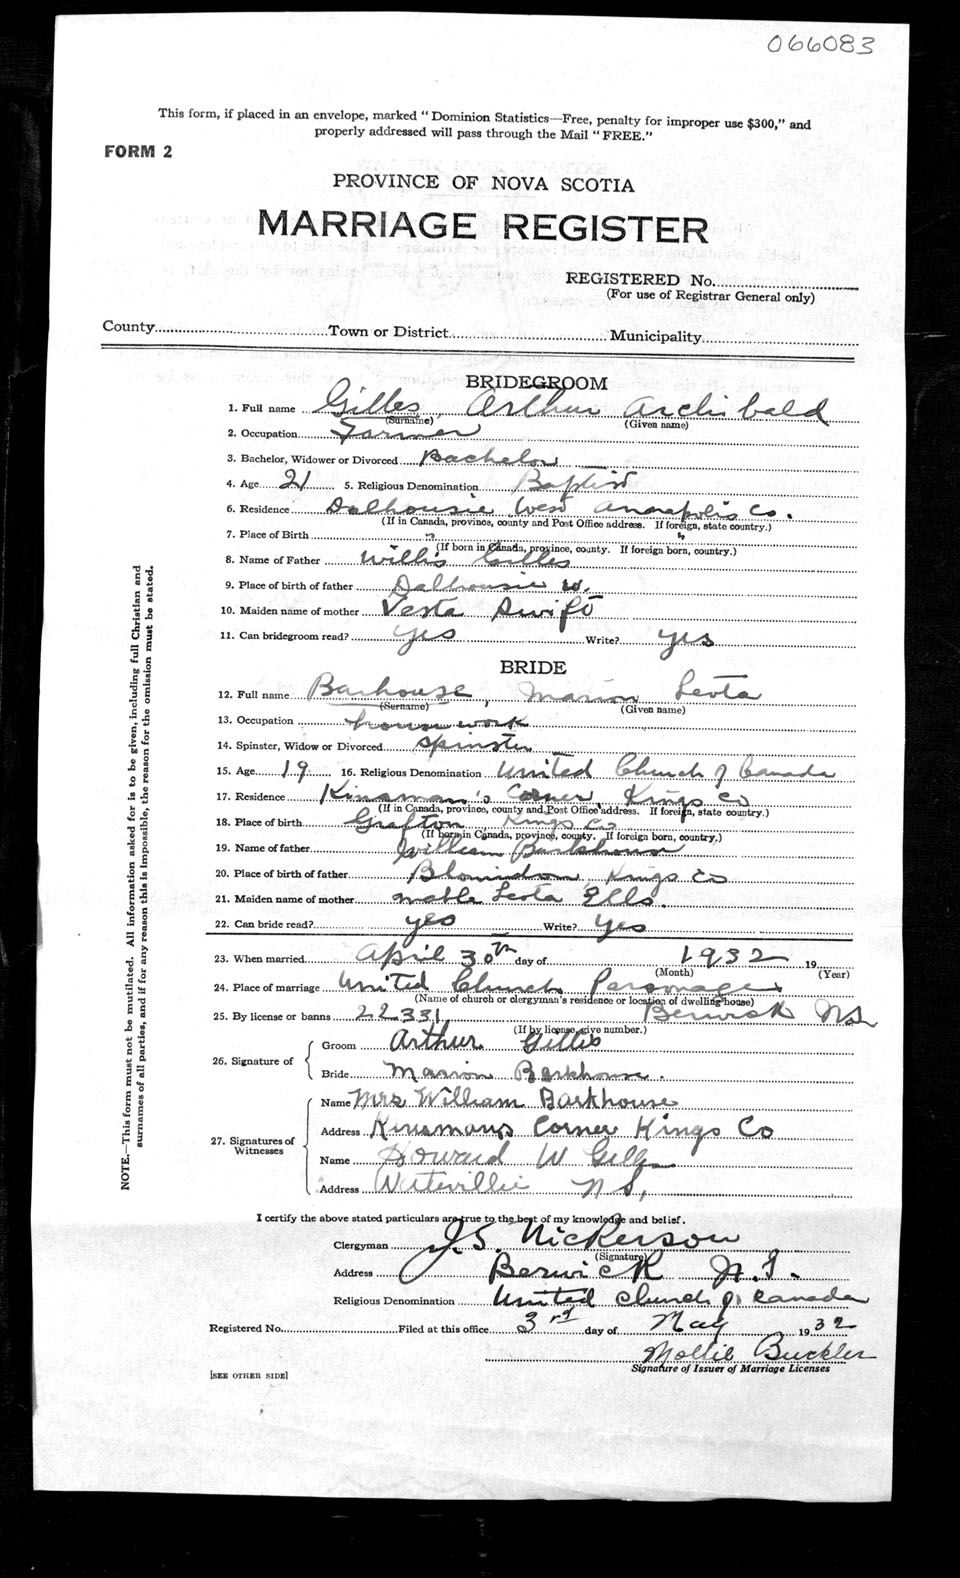 066083
This form, if placed in an envelope, marked "Dominion Statistics—Free, penalty for improper use $300," and
properly addressed will pass through the Mail "FREE."
FORM 2
PROVINCE OF NOVA SCOTIA
MARRIAGE REGISTER
REGISTERED No.
(For use of Registrar General only)
County Town or District Municipality
BRIDEGROOM
1. Full name Gilles, Arthur Archibald
(Surname) (Given name)
2. Occupation Farmer
3. Bachelor, Widower or Divorced Bachelor
4. Age 21 5. Religious Denomination Baptist
6. Residence Dalhousie West Annapolis Co.
(If in Canada, province, county and Post Office address. If foreign, state country.)
7. Place of Birth " "
(If born in Canada, province, county. If foreign born, country.)
8. Name of Father Willis Gilles
9. Place of birth of father Dalhousie W.
10. Maiden name of mother Vesta Swift
11. Can bridegroom read? yes Write? yes
BRIDE
12. Full name Barhouse, Marion Leota
(Surname) (Given name)
13. Occupation housework
14. Spinster, Widow or Divorced Spinster
15. Age 19 16. Religious Denomination United Church of Canada
17. Residence Kinsman's Corner, Kings Co
(If in Canada, province, county and Post Office address. If foreign, state country.)
18. Place of birth Grafton Kings Co
(If born in Canada, province, county. If foreign born, country.)
19. Name of father William Barkhouse
20. Place of birth of father Blomidon, Kings Co
21. Maiden name of mother Mable Leota Ells.
22. Can bride read? yes Write? yes
23. When married April 30th day of 1932 19
(Month) (Year)
24. Place of marriage United Church Parsonage
(Name of church or clergyman's residence or location of dwelling house)
25. By license or banns 22331 Berwick NS
(If by license, give number.)
26. Signature of
Groom Arthur Gillis
Bride Marion Barkhouse.
27. Signatures of Witnesses
Name Mrs William Barkhouse
Address Kinsmans Corner Kings Co
Name Howard W Gillis
Address Waterville N S,
I certify the above stated particulars are true to the best of my knowledge and belief.
Clergyman J.S. Nickerson
(Signature)
Address Berwick N.S.
Religious Denomination United Church of Canada
Registered No. Filed at this office 3rd day of May 1932
Mollie Buckler
Signature of Issuer of Marriage Licenses
[SEE OTHER SIDE]
NOTE.—This form must not be mutilated. All information asked for is to be given, including full Christian and
surnames of all parties, and if for any reason this is impossible, the reason for the omission must be stated.